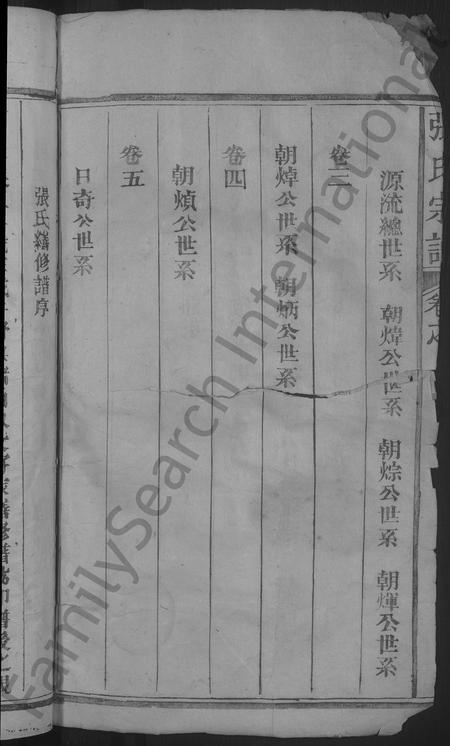 張氏宗譜 卷
源流總世系 朝煒公世系 朝倧公世系 朝煇公世系
卷三
朝焯公世系 朝炳公世系
卷四
朝熉公世系
卷五
日奇公世系
張氏續修譜序
FamilySearch International